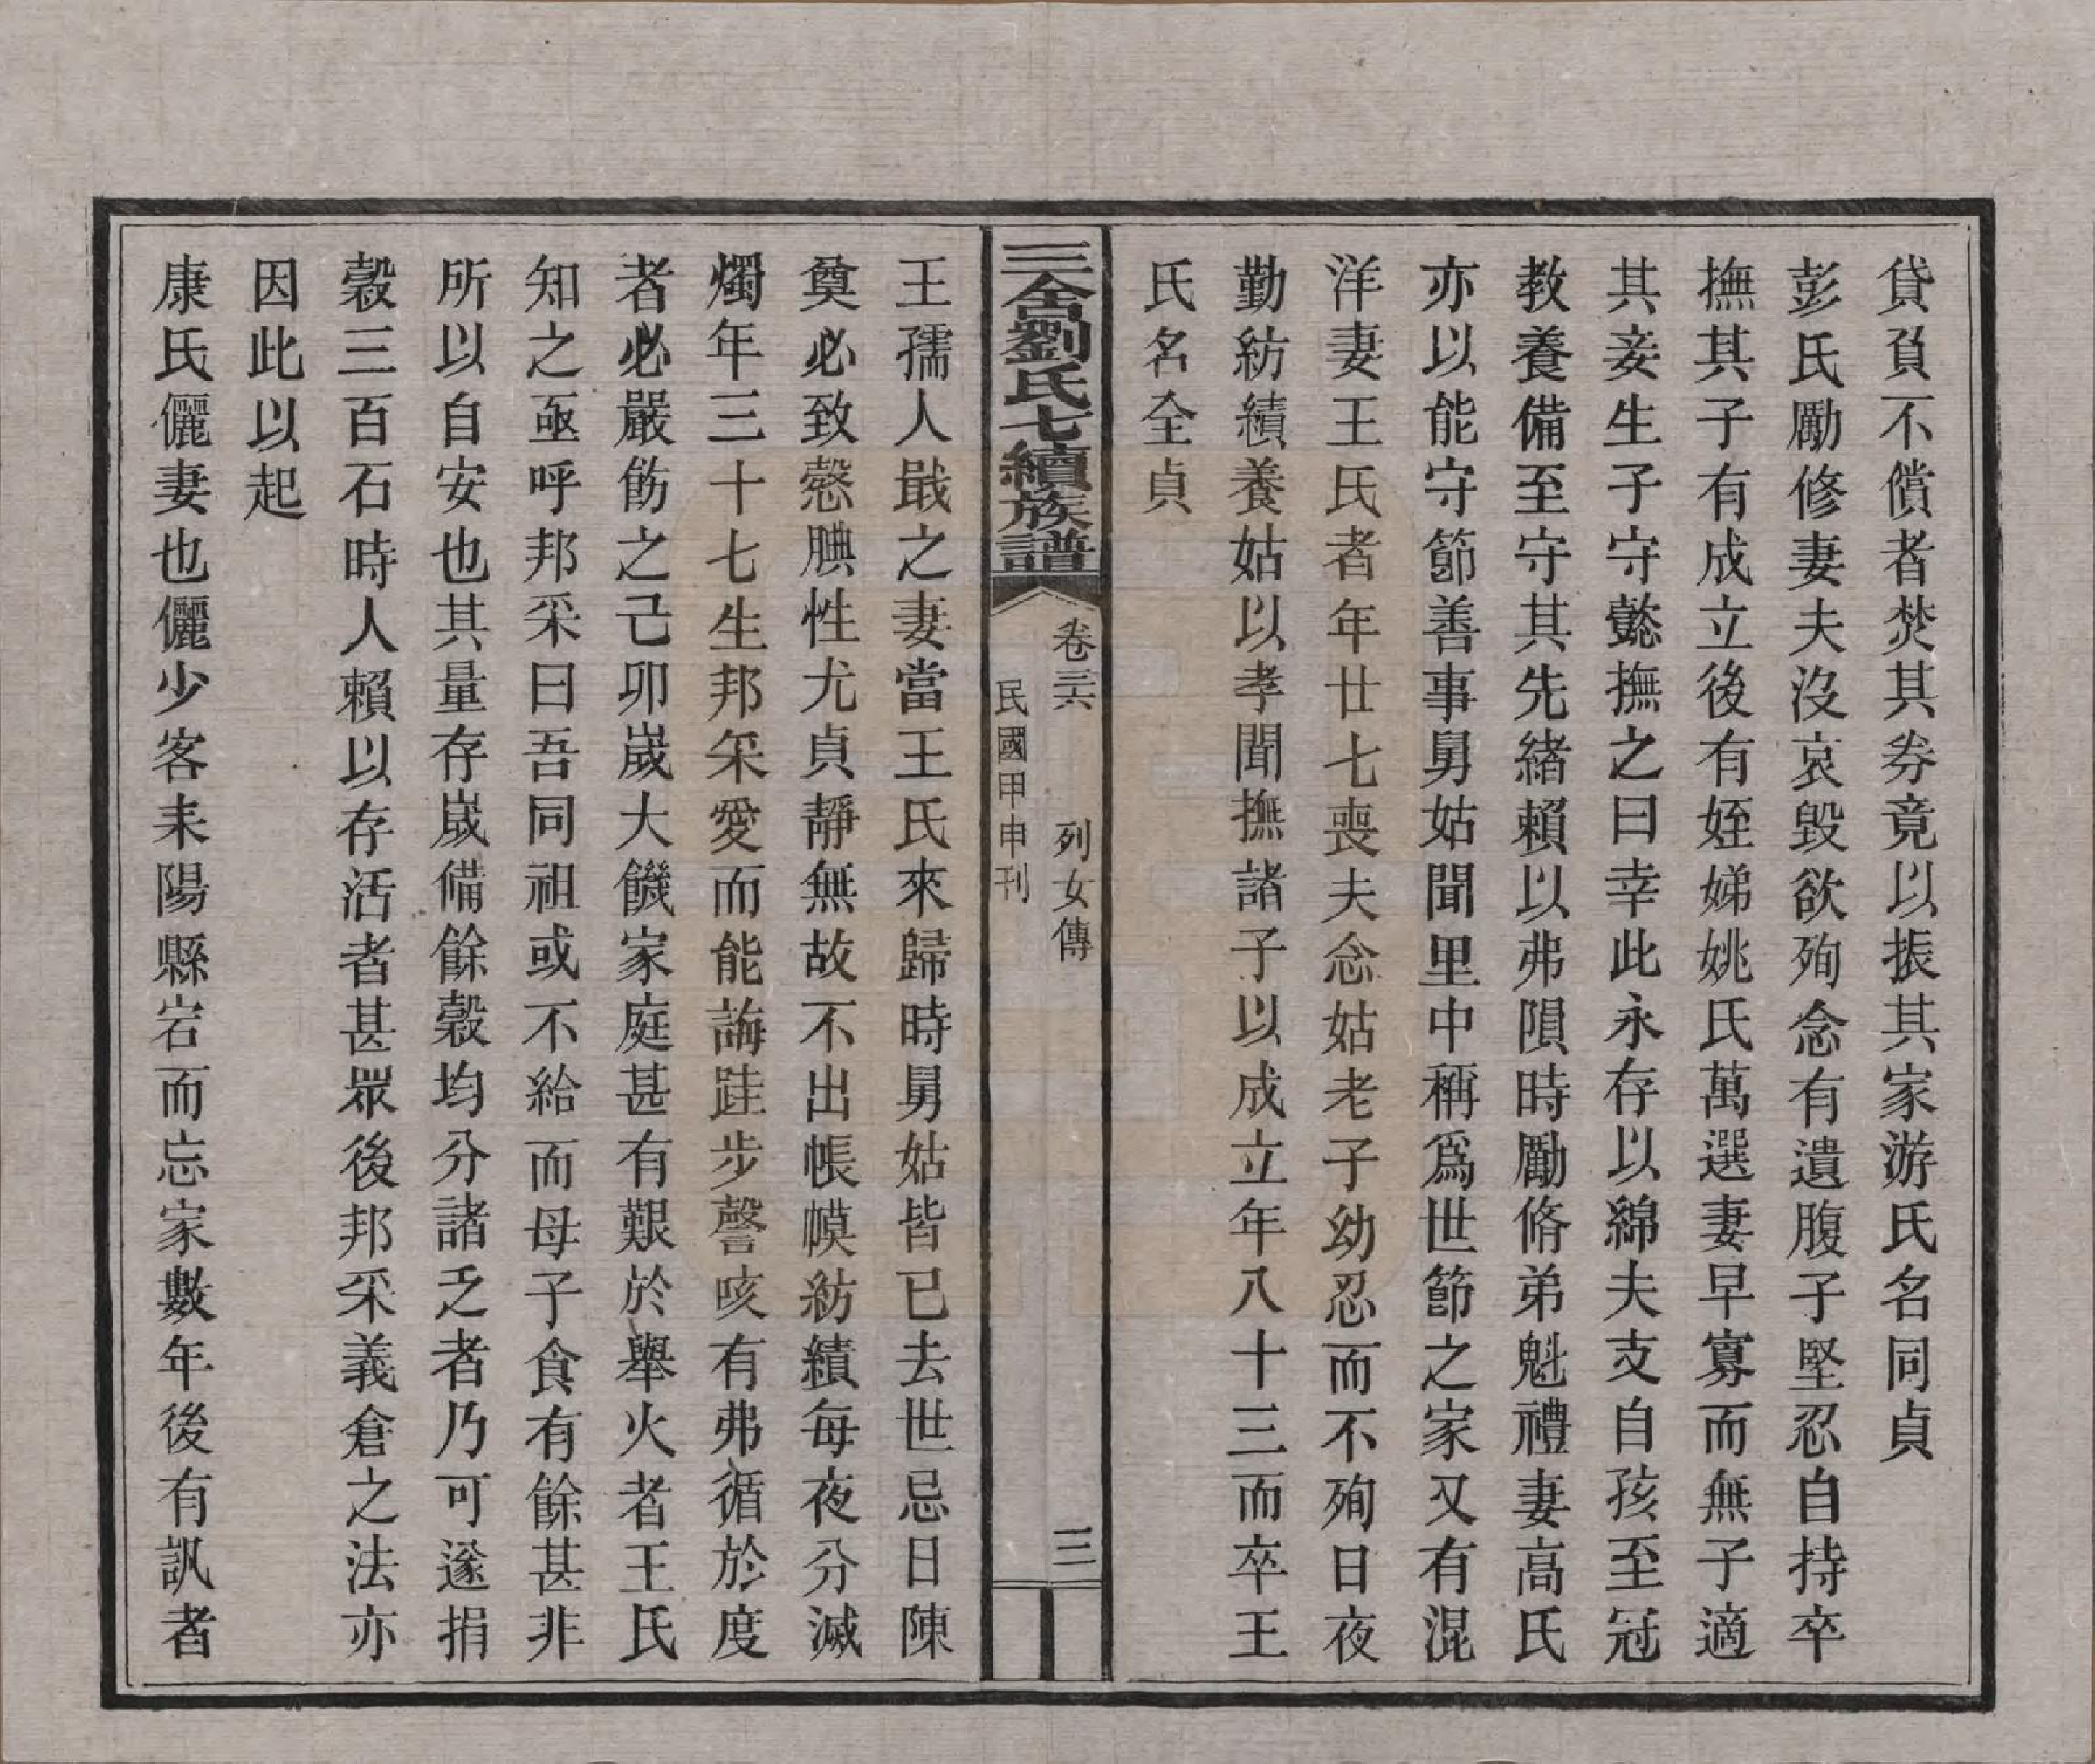 貸負不償者焚其券竟以振其家游氏名同貞
彭氏勵修妻夫沒哀毀欲殉念有遺腹子堅忍自持卒
撫其子有成立後有姪娣姚氏萬選妻早寡而無子適
其妾生子守懿撫之曰幸此永存以綿夫支自孩至冠
教養備至守其先緒賴以弗隕時勵脩弟魁禮妻高氏
亦以能守節善事舅姑聞里中稱爲世節之家又有混
洋妻王氏者年廿七喪夫念姑老子幼忍而不殉日夜
勤紡績養姑以孝聞撫諸子以成立年八十三而卒王
氏名全貞
三舍劉氏七續族譜
卷三六
列女傳
三
民國甲申刊
王孺人戢之妻當王氏來歸時舅姑皆已去世忌日陳
奠必致慤腆性尤貞靜無故不出帳幙紡績每夜分滅
燭年三十七生邦采愛而能誨跬步謦咳有弗循於度
者必嚴飭之己卯歲大饑家庭甚有艱於舉火者王氏
知之亟呼邦采曰吾同祖或不給而母子食有餘甚非
所以自安也其量存歲備餘穀均分諸乏者乃可遂捐
穀三百石時人賴以存活者甚眾後邦采義倉之法亦
因此以起
康氏儷妻也儷少客耒陽縣宕而忘家數年後有訊者